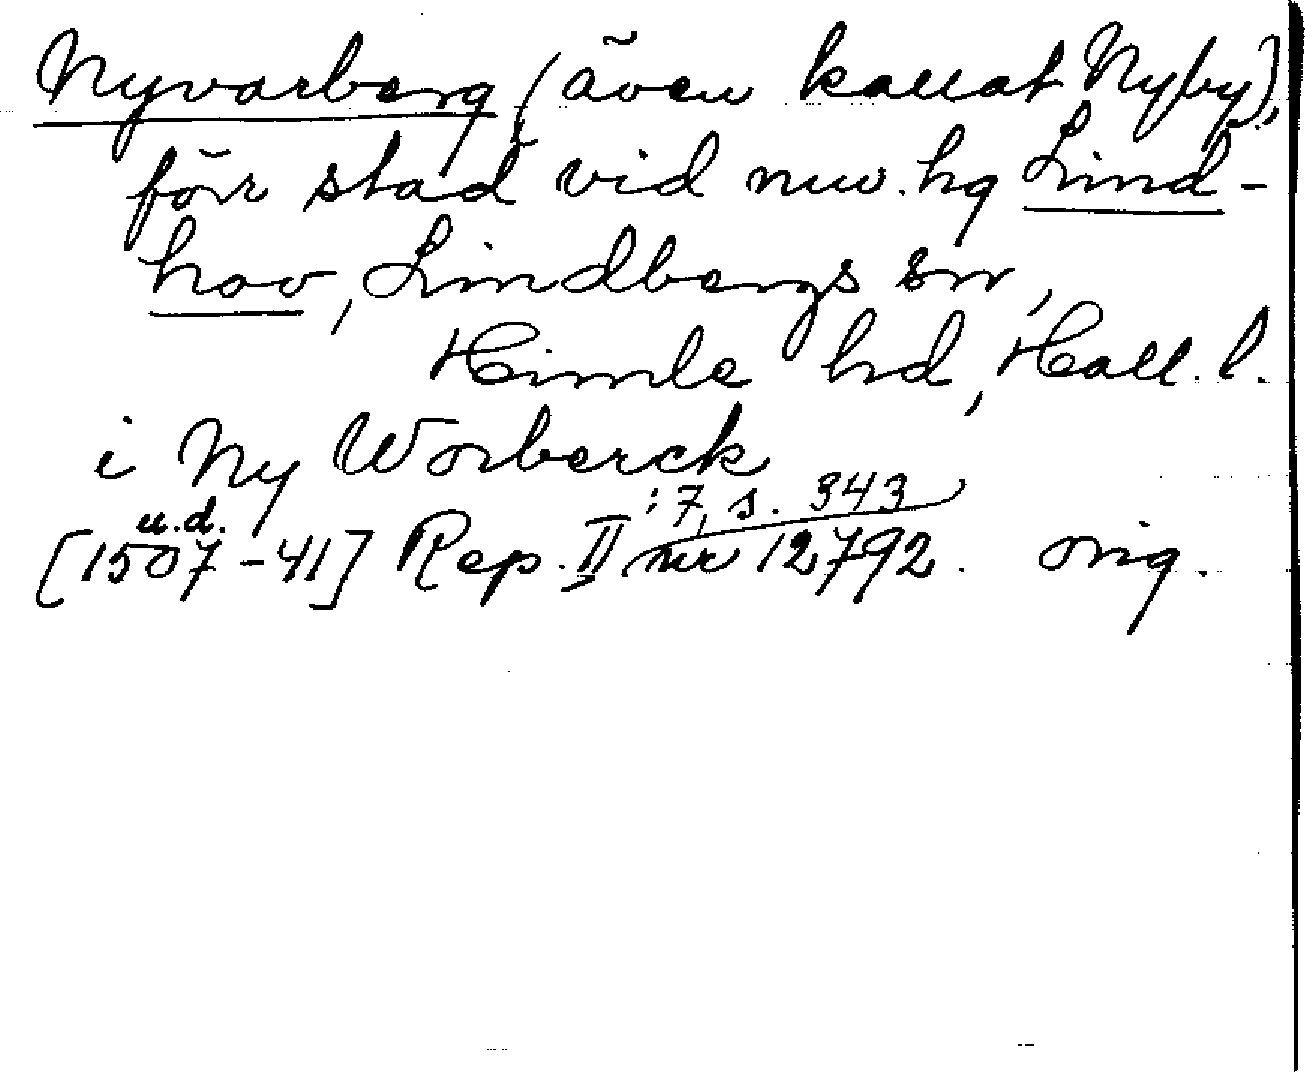 Nyvarberg (även kallat Nyby),
förr stad vid nuv. hg Lind-
hov, Lindbergs sn,
Himle hd, Hall. l.
i Ny Worberck
u.d. : 7, s. 343
[1507-41] Rep. II nr 12792. orig.